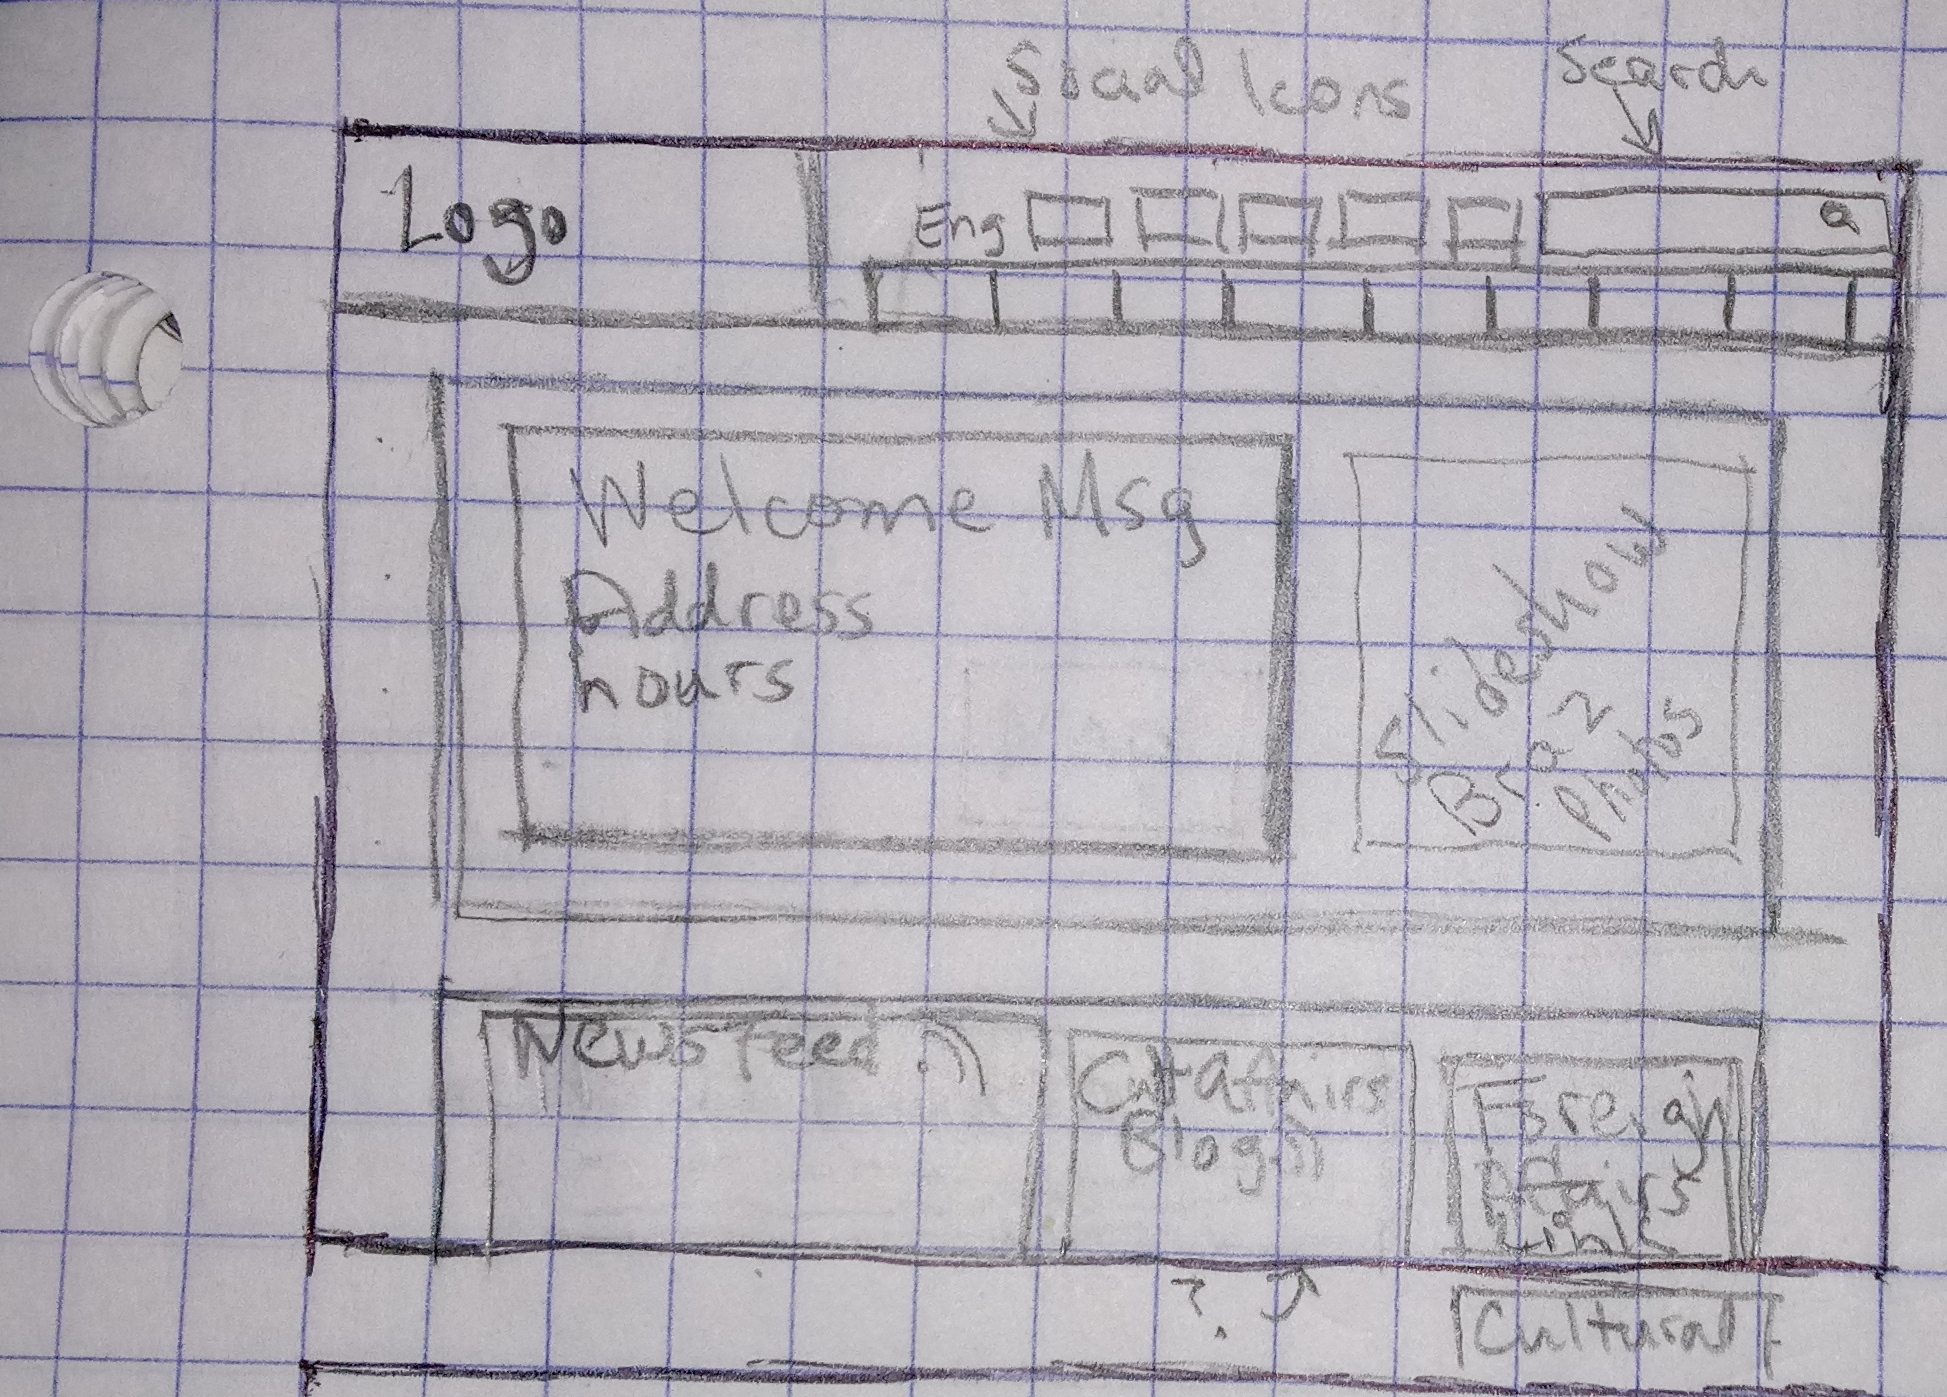 Social Icons
Search
Logo
Eng
Welcome Msg
Address
hours
Slideshow
Braz
Photos
Newsfeed
Cult Affairs
Blog
Foreign
Affairs
Link
?
Cultural